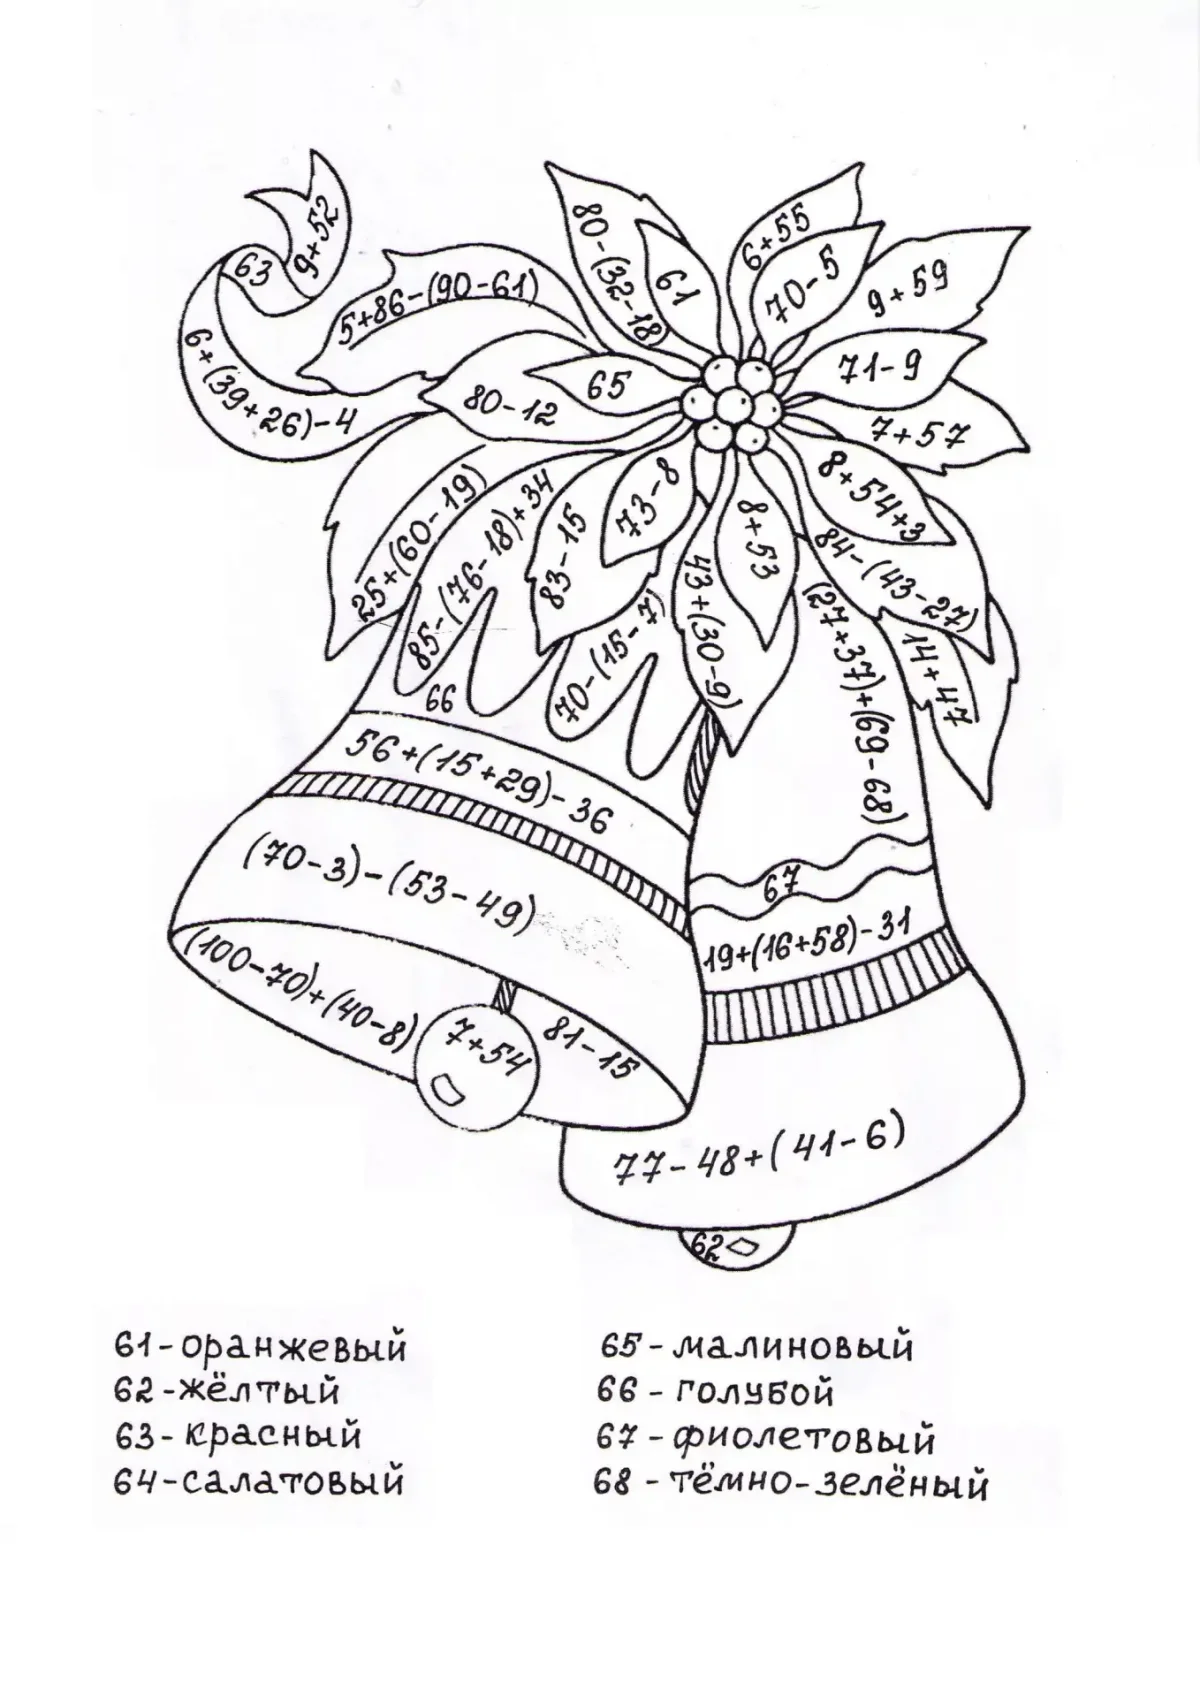 9+52
63
6+(39+26)-4
5+86-(90-61)
80-(32-18)
61
6+55
70-5
9+59
71-9
7+57
65
80-12
8+54+3
84-(43-27)
14+47
25+(60-19)
85-(76-18)+34
83-15
73-8
8+53
43+(30-9)
70-(15-7)
(27+37)+(69-68)
66
56+(15+29)-36
67
(70-3)-(53-49)
19+(16+58)-31
(100-70)+(40-8)
7+54
81-15
77-48+(41-6)
62
61-оранжевый
62-жёлтый
63-красный
64-салатовый
65-малиновый
66-голубой
67-фиолетовый
68-тёмно-зелёный